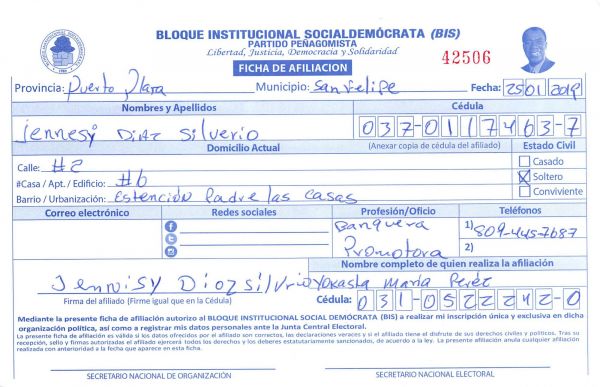 BLOQUE INSTITUCIONAL SOCIALDEMÓCRATA (BIS)
PARTIDO PEÑAGOMISTA
Libertad, Justicia, Democracia y Solidaridad
42506
FICHA DE AFILIACION
Provincia: Puerto Plata Municipio: San Felipe Fecha: 25 01 2019
Nombres y Apellidos Cédula
Jennesy Diaz Silverio 037-0117463-7
Domicilio Actual (Anexar copia de cédula del afiliado) Estado Civil
Calle: #2 Casado
#Casa / Apt. / Edificio: #6 Soltero
Barrio / Urbanización: Estención Padre las Casas Conviviente
Correo electrónico Redes sociales Profesión/Oficio Teléfonos
Banquera 1) 809-445-7687
Promotora 2)
Nombre completo de quien realiza la afiliación
Jennisy Diaz Silverio Yokasta María Perez
Firma del afiliado (Firme igual que en la Cédula) Cédula: 031-0522242-0
Mediante la presente ficha de afiliación autorizo al BLOQUE INSTITUCIONAL SOCIAL DEMÓCRATA (BIS) a realizar mi inscripción única y exclusiva en dicha
organización política, así como a registrar mis datos personales ante la Junta Central Electoral.
La presente ficha de afiliación es válida si los datos ofrecidos por el afiliado son correctos, las declaraciones veraces y si el afiliado tiene el disfrute de sus derechos civiles y políticos. Tras su
recepción, sello y firmas autorizadas el afiliado ejercerá todos los derechos y los deberes estatutariamente sancionados, de acuerdo a la ley. La presente afiliación anula cualquier afiliación
realizada con anterioridad a la fecha que aparece en esta ficha.
SECRETARIO NACIONAL DE ORGANIZACIÓN SECRETARIO NACIONAL ELECTORAL